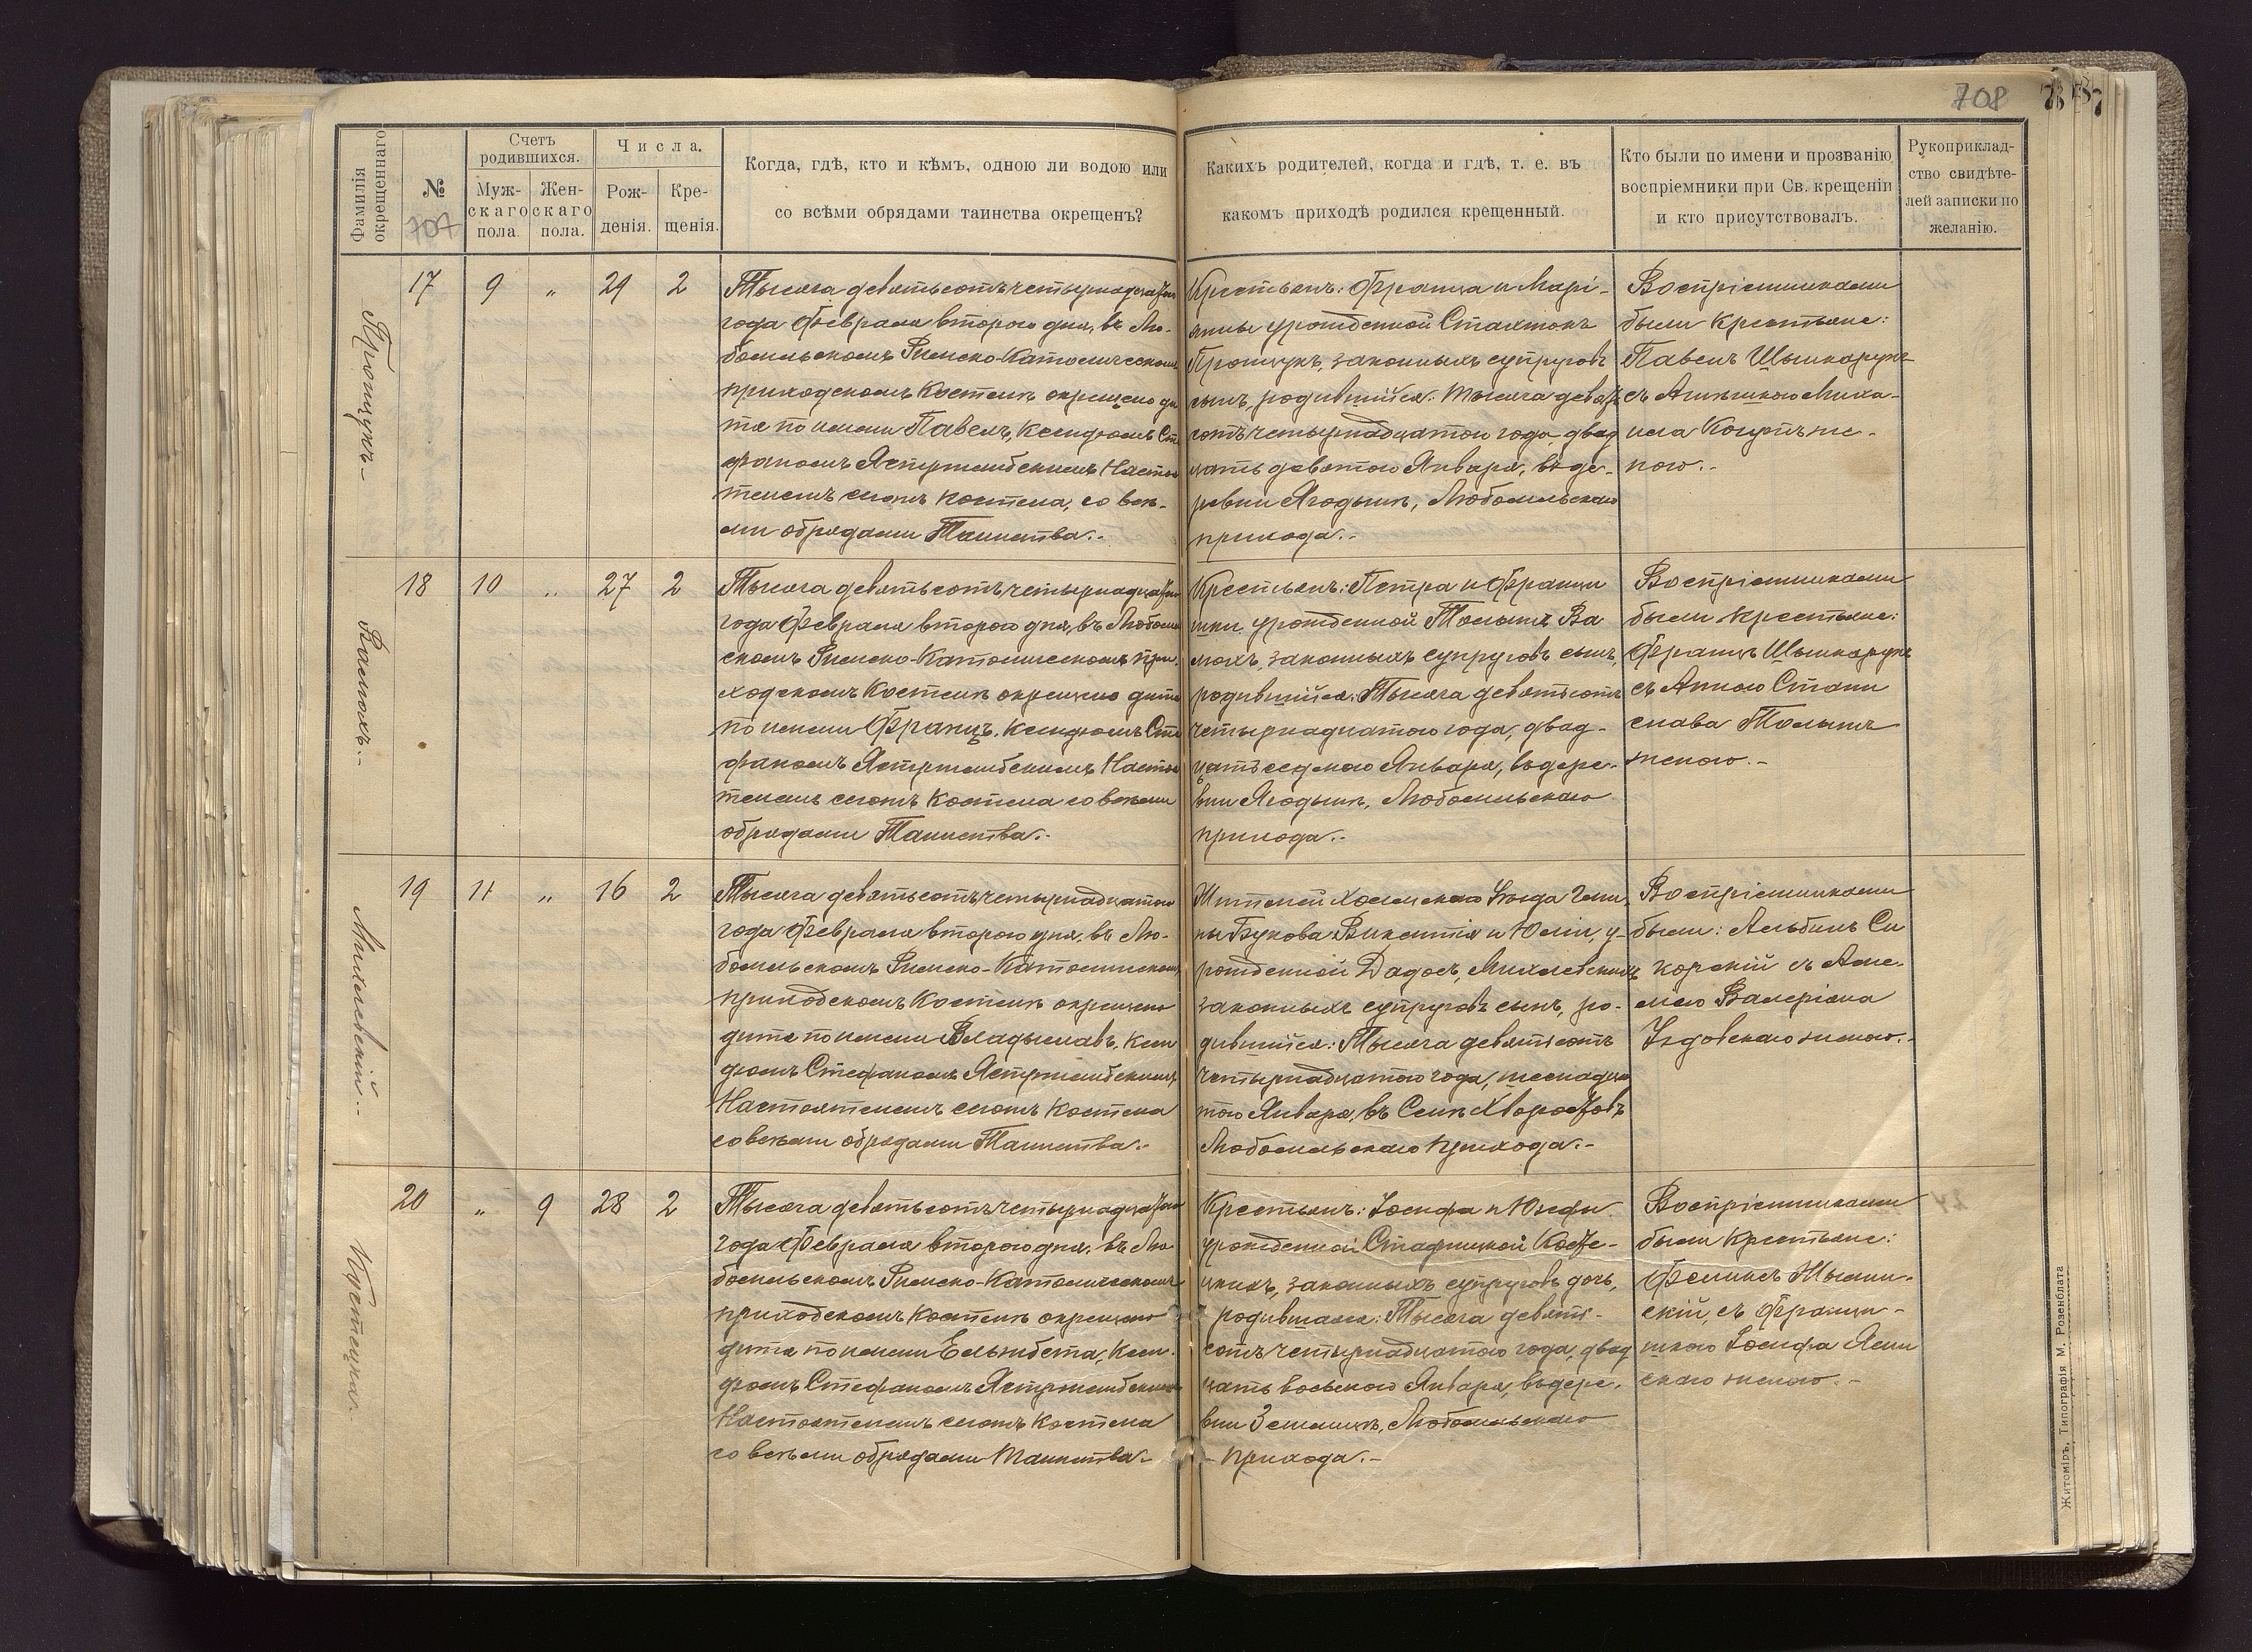 708
Фамилія окрещеннаго
№
707
Счетъ родившихся.
Мужскаго пола.
Женскаго пола.
Числа.
Рожденія.
Крещенія.
Когда, гдѣ, кто и кѣмъ, одною ли водою или
со всѣми обрядами таинства окрещенъ?
Какихъ родителей, когда и гдѣ, т. е. въ
какомъ приходѣ родился крещенный.
Кто были по имени и прозванію
воспріемники при Св. крещеніи
и кто присутствовалъ.
Рукоприклад-
ство свидѣте-
лей записки по
желанію.
17 9 „ 29 2
Тысяча девятьсотъ четырнадцатаго
года Февраля второго дня, въ Лю-
бомльскомъ Римско-Католическомъ
приходскомъ Костелѣ окрещено ди
тя по имени Павелъ, Ксендзомъ Сте
фаномъ Ястржембскимъ Настоя
телемъ сего Костела, со всѣ-
ми обрядами Таинства.-
Крестьянъ: Франца и Марі-
анны урожденной
законныхъ супруговъ
сынъ, родившійся: Тысяча девять
сотъ четырнадцатого года, двад
цать девятого Января, въ де-
ревни Ягодынѣ, Любомльскаго
прихода.-
Воспріемниками
были Крестьяне:
Павелъ
съ Миха-
ила
ною.-
18 10 „ 27 2
Вамюхъ.-
Тысяча девятьсотъ четырнадцатаго
года Февраля второго дня, въ Любомль
скомъ Римско-Католическомъ при-
ходскомъ Костелѣ окрещено дитя
по имени Францъ, Ксендзомъ Сте
фаномъ Ястржембскимъ Настоя
телемъ сего Костела со всѣми
обрядами Таинства.-
Крестьянъ: Петра и Франци
шки урожденной Ва
мюхъ, законныхъ супруговъ сынъ,
родившійся: Тысяча девятьсотъ
четырнадцатого года, двад-
цать седмого Января, въ дере-
вни Ягодынѣ, Любомльскаго
прихода.-
Воспріемниками
были Крестьяне:
Францъ
съ Анною Стани
слава
женою.-
19 11 „ 16 2
Михлевскій.-
Тысяча девятьсотъ четырнадцатого
года Февраля второго дня, въ Лю-
бомльскомъ Римско-Католическомъ
приходскомъ Костелѣ окрещено
дитя по имени Владыславъ, Ксен
дзомъ Стефаномъ Ястржембскимъ
Настоятелемъ сего Костела
со всѣми обрядами Таинства.-
Жителей Холмскаго Уѣзда Гми-
ны Букова: Викентія и Юліи, у-
рожденной Дадосъ, Михлевскихъ
законныхъ супруговъ сынъ, ро-
дившійся: Тысяча девятьсотъ
четырнадцатого года, шеснадца
того Января, въ Селѣ Хворостовъ
Любомльскаго прихода.-
Воспріемниками
были: Альбинъ Си
корскій съ
Валеріана
женою.-
20 „ 9 28 2
Тысяча девятьсотъ четырнадцатаго
года Февраля второго дня, въ Лю
бомльскомъ Римско-Католическомъ
приходскомъ Костелѣ окрещено
дитя по имени Ельжбета, Ксен-
дзомъ Стефаномъ Ястржембскимъ
Настоятелемъ сего Костела
со всѣми обрядами Таинства.-
Крестьянъ: Іосифа и Юзефы
урожденной
законныхъ супруговъ дочь,
родившаяся: Тысяча девять-
сотъ четырнадцатого года, двад
цать восьмого Января, въ дере-
вни Землицѣ, Любомльскаго
прихода.-
Воспріемниками
были Крестьяне:
Феликсъ
скій, съ Франци-
шкою Іосифа Ясин
скаго женою.-
Житоміръ, Типографія М. Розенблата